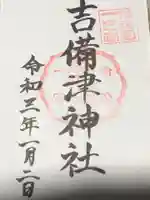 吉備津神社
令和三年一月二日